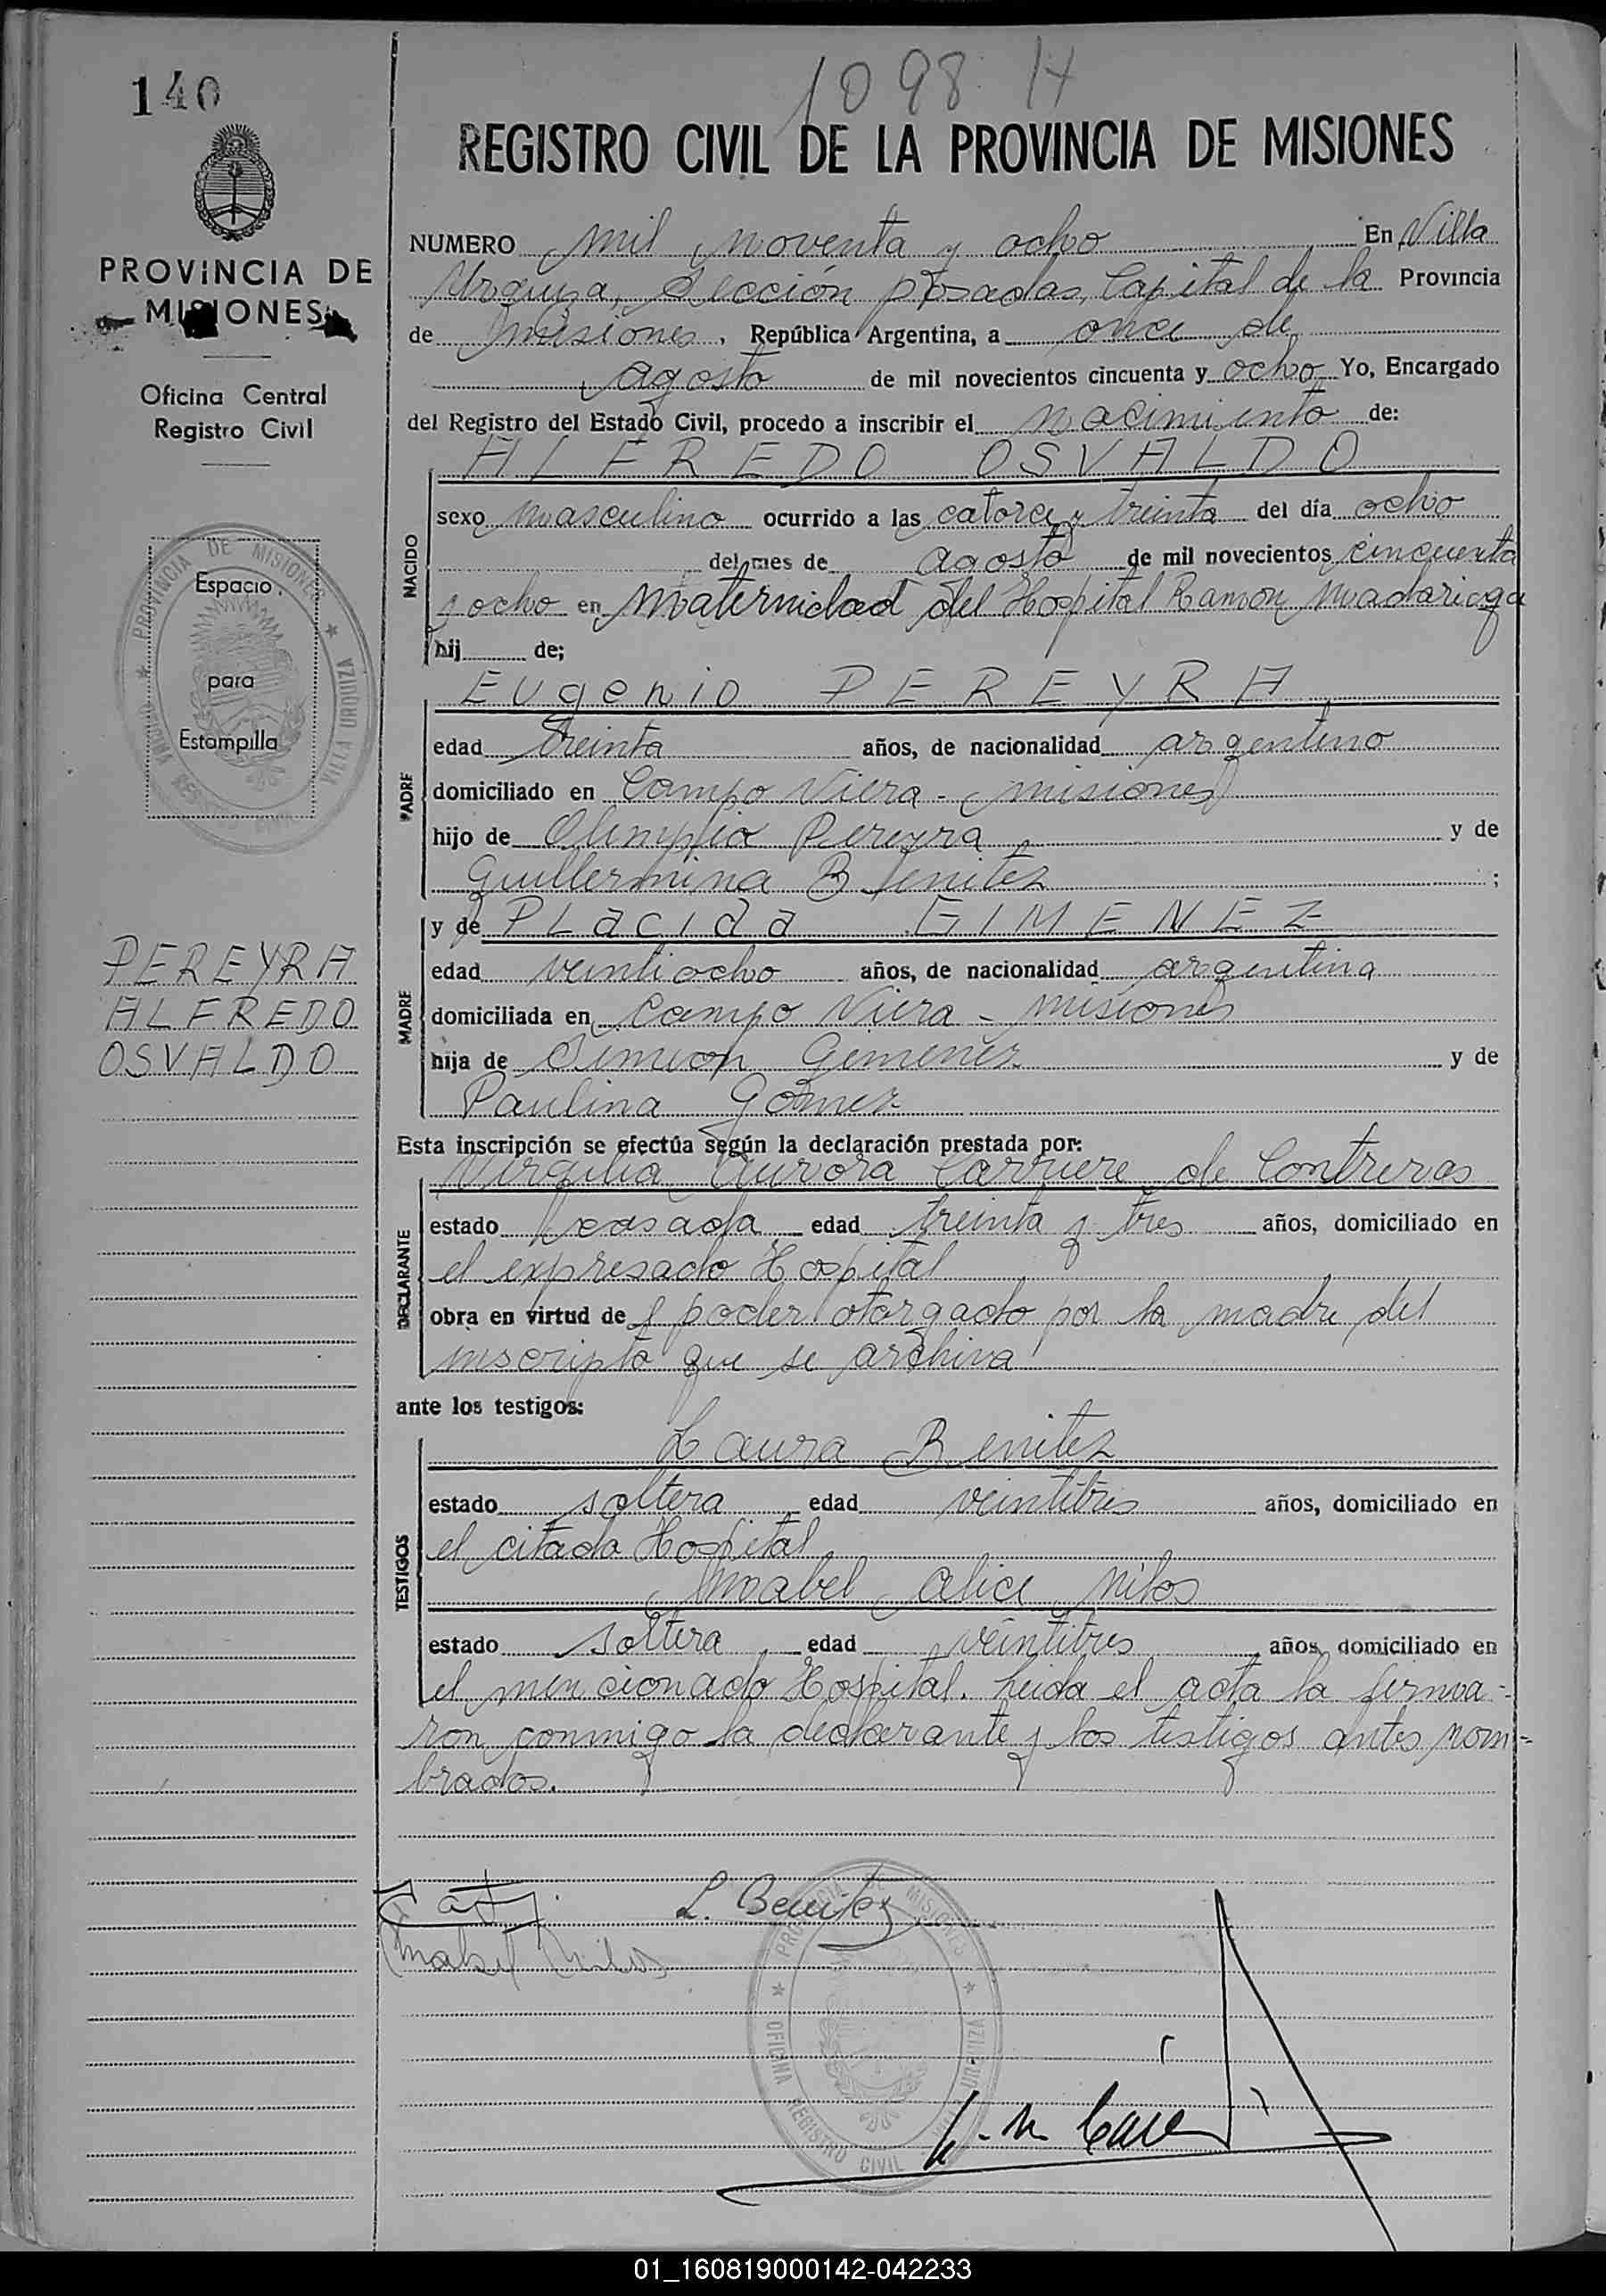 140
1098 H
REGISTRO CIVIL DE LA PROVINCIA DE MISIONES
PROVINCIA DE
MISIONES
Oficina Central
Registro Civil
PROVINCIA DE MISIONES
OFICINA REGISTRO CIVIL
VILLA URQUIZA
Espacio
para
Estampilla
PEREYRA
ALFREDO
OSVALDO
NUMERO mil noventa y ocho En Villa
Urquiza, Sección Posadas, Capital de la Provincia
de Misiones, República Argentina, a once de
agosto de mil novecientos cincuenta y ocho Yo, Encargado
del Registro del Estado Civil, procedo a inscribir el nacimiento de:
ALFREDO OSVALDO
NACIDO
sexo masculino ocurrido a las catorce y treinta del día ocho
del mes de agosto de mil novecientos cincuenta
y ocho en Maternidad del Hospital Ramon Madariaga
hij de;
PADRE
Eugenio PEREYRA
edad treinta años, de nacionalidad argentino
domiciliado en Campo Viera - Misiones
hijo de Olimpio Pereyra y de
Guillermina Benitez ;
MADRE
y de Placida GIMENEZ
edad veintiocho años, de nacionalidad argentina
domiciliada en Campo Viera - Misiones
hija de Simeon Gimenez y de
Paulina Gomez
Esta inscripción se efectúa según la declaración prestada por:
DECLARANTE
Virgilia Aurora Carriere de Contreras
estado casada edad treinta y tres años, domiciliado en
el expresado Hospital
obra en virtud de poder otorgado por la madre del
inscripto que se archiva
ante los testigos:
TESTIGOS
Laura Benitez
estado soltera edad veintitres años, domiciliado en
el citado Hospital
Mabel Alice Milos
estado soltera edad veintitres años, domiciliado en
el mencionado Hospital. Leida el acta la firma-
ron conmigo la declarante y los testigos antes nom=
brados.
L. Benitez
Mabel Milos
PROVINCIA DE MISIONES
OFICINA REGISTRO CIVIL
VILLA URQUIZA
01_160819000142-042233